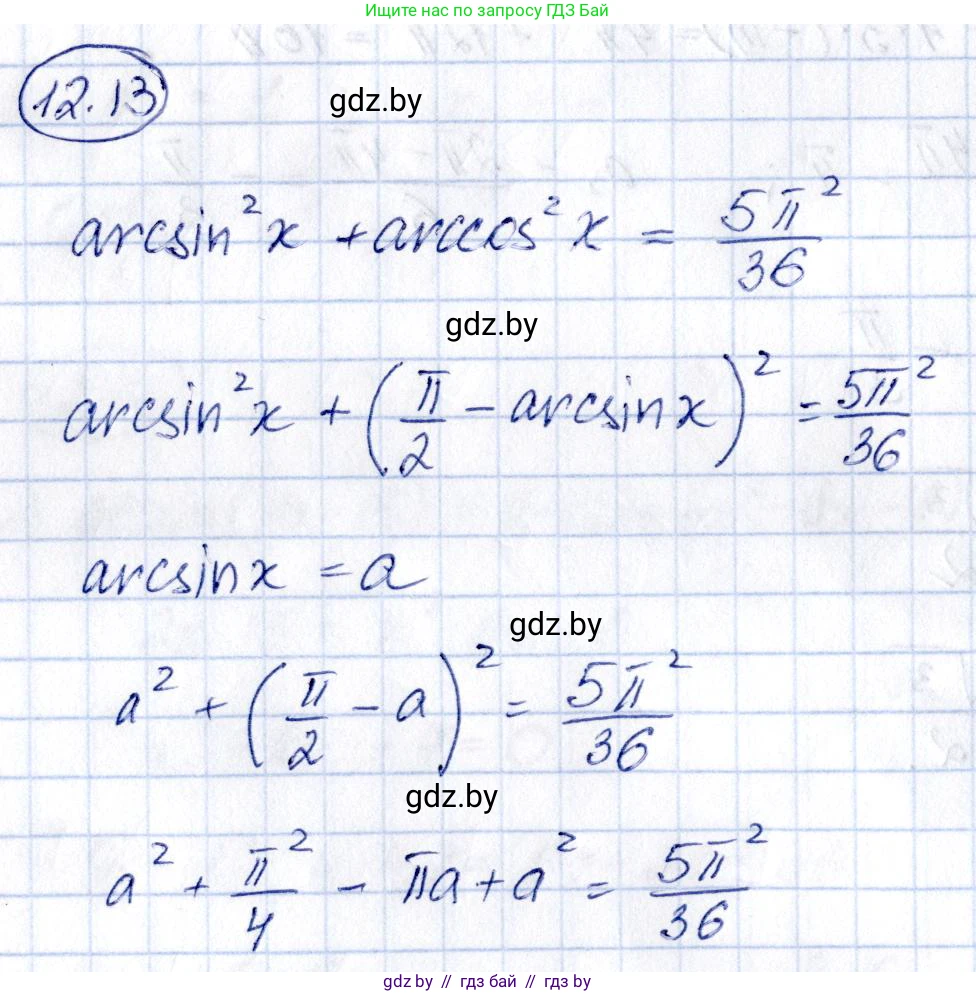 Ищите нас по запросу ГДЗ Бай
12.13
gdz.by
arcsin²x + arccos²x = 5π²/36
gdz.by
arcsin²x + (π/2 - arcsinx)² = 5π²/36
arcsinx = a
gdz.by
a² + (π/2 - a)² = 5π²/36
gdz.by
a² + π²/4 - πa + a² = 5π²/36
gdz.by // гдз бай // гдз by